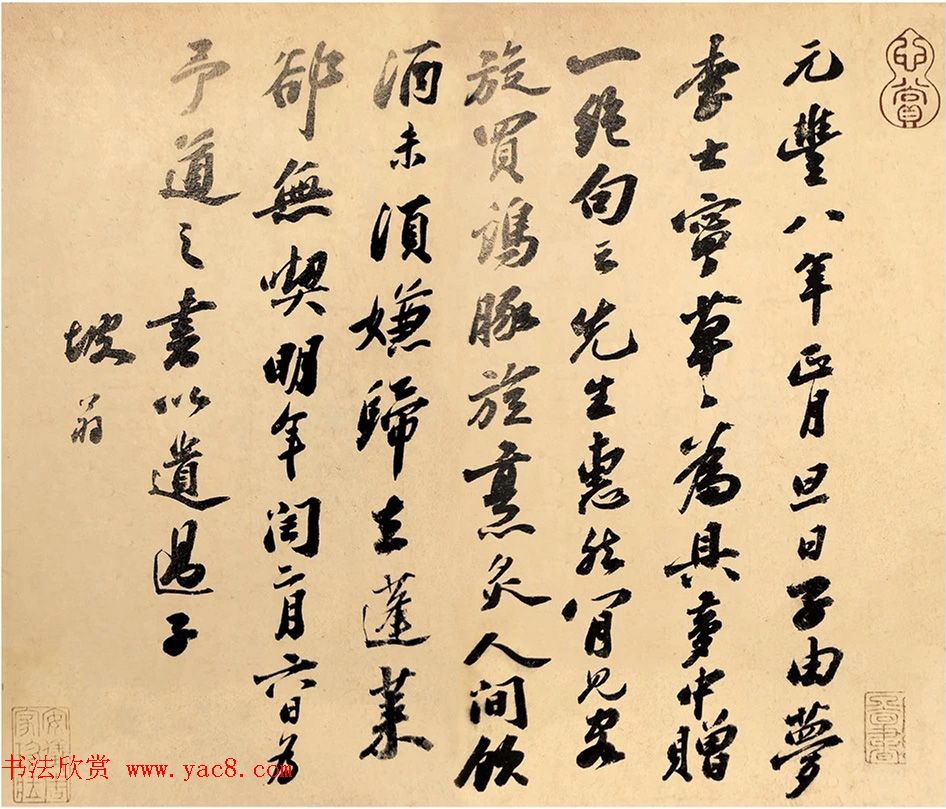 心賞
元豐八年正月旦日子由夢
李士寧草〻為具夢中贈
一絕句云先生惠然肯見客
旋買鷄豚旋烹炙人間飲
酒未須嫌歸去蓬萊
卻無喫明年閏二月六日為
予道之書以遺過子
坡翁
书法欣赏 www.yac8.com